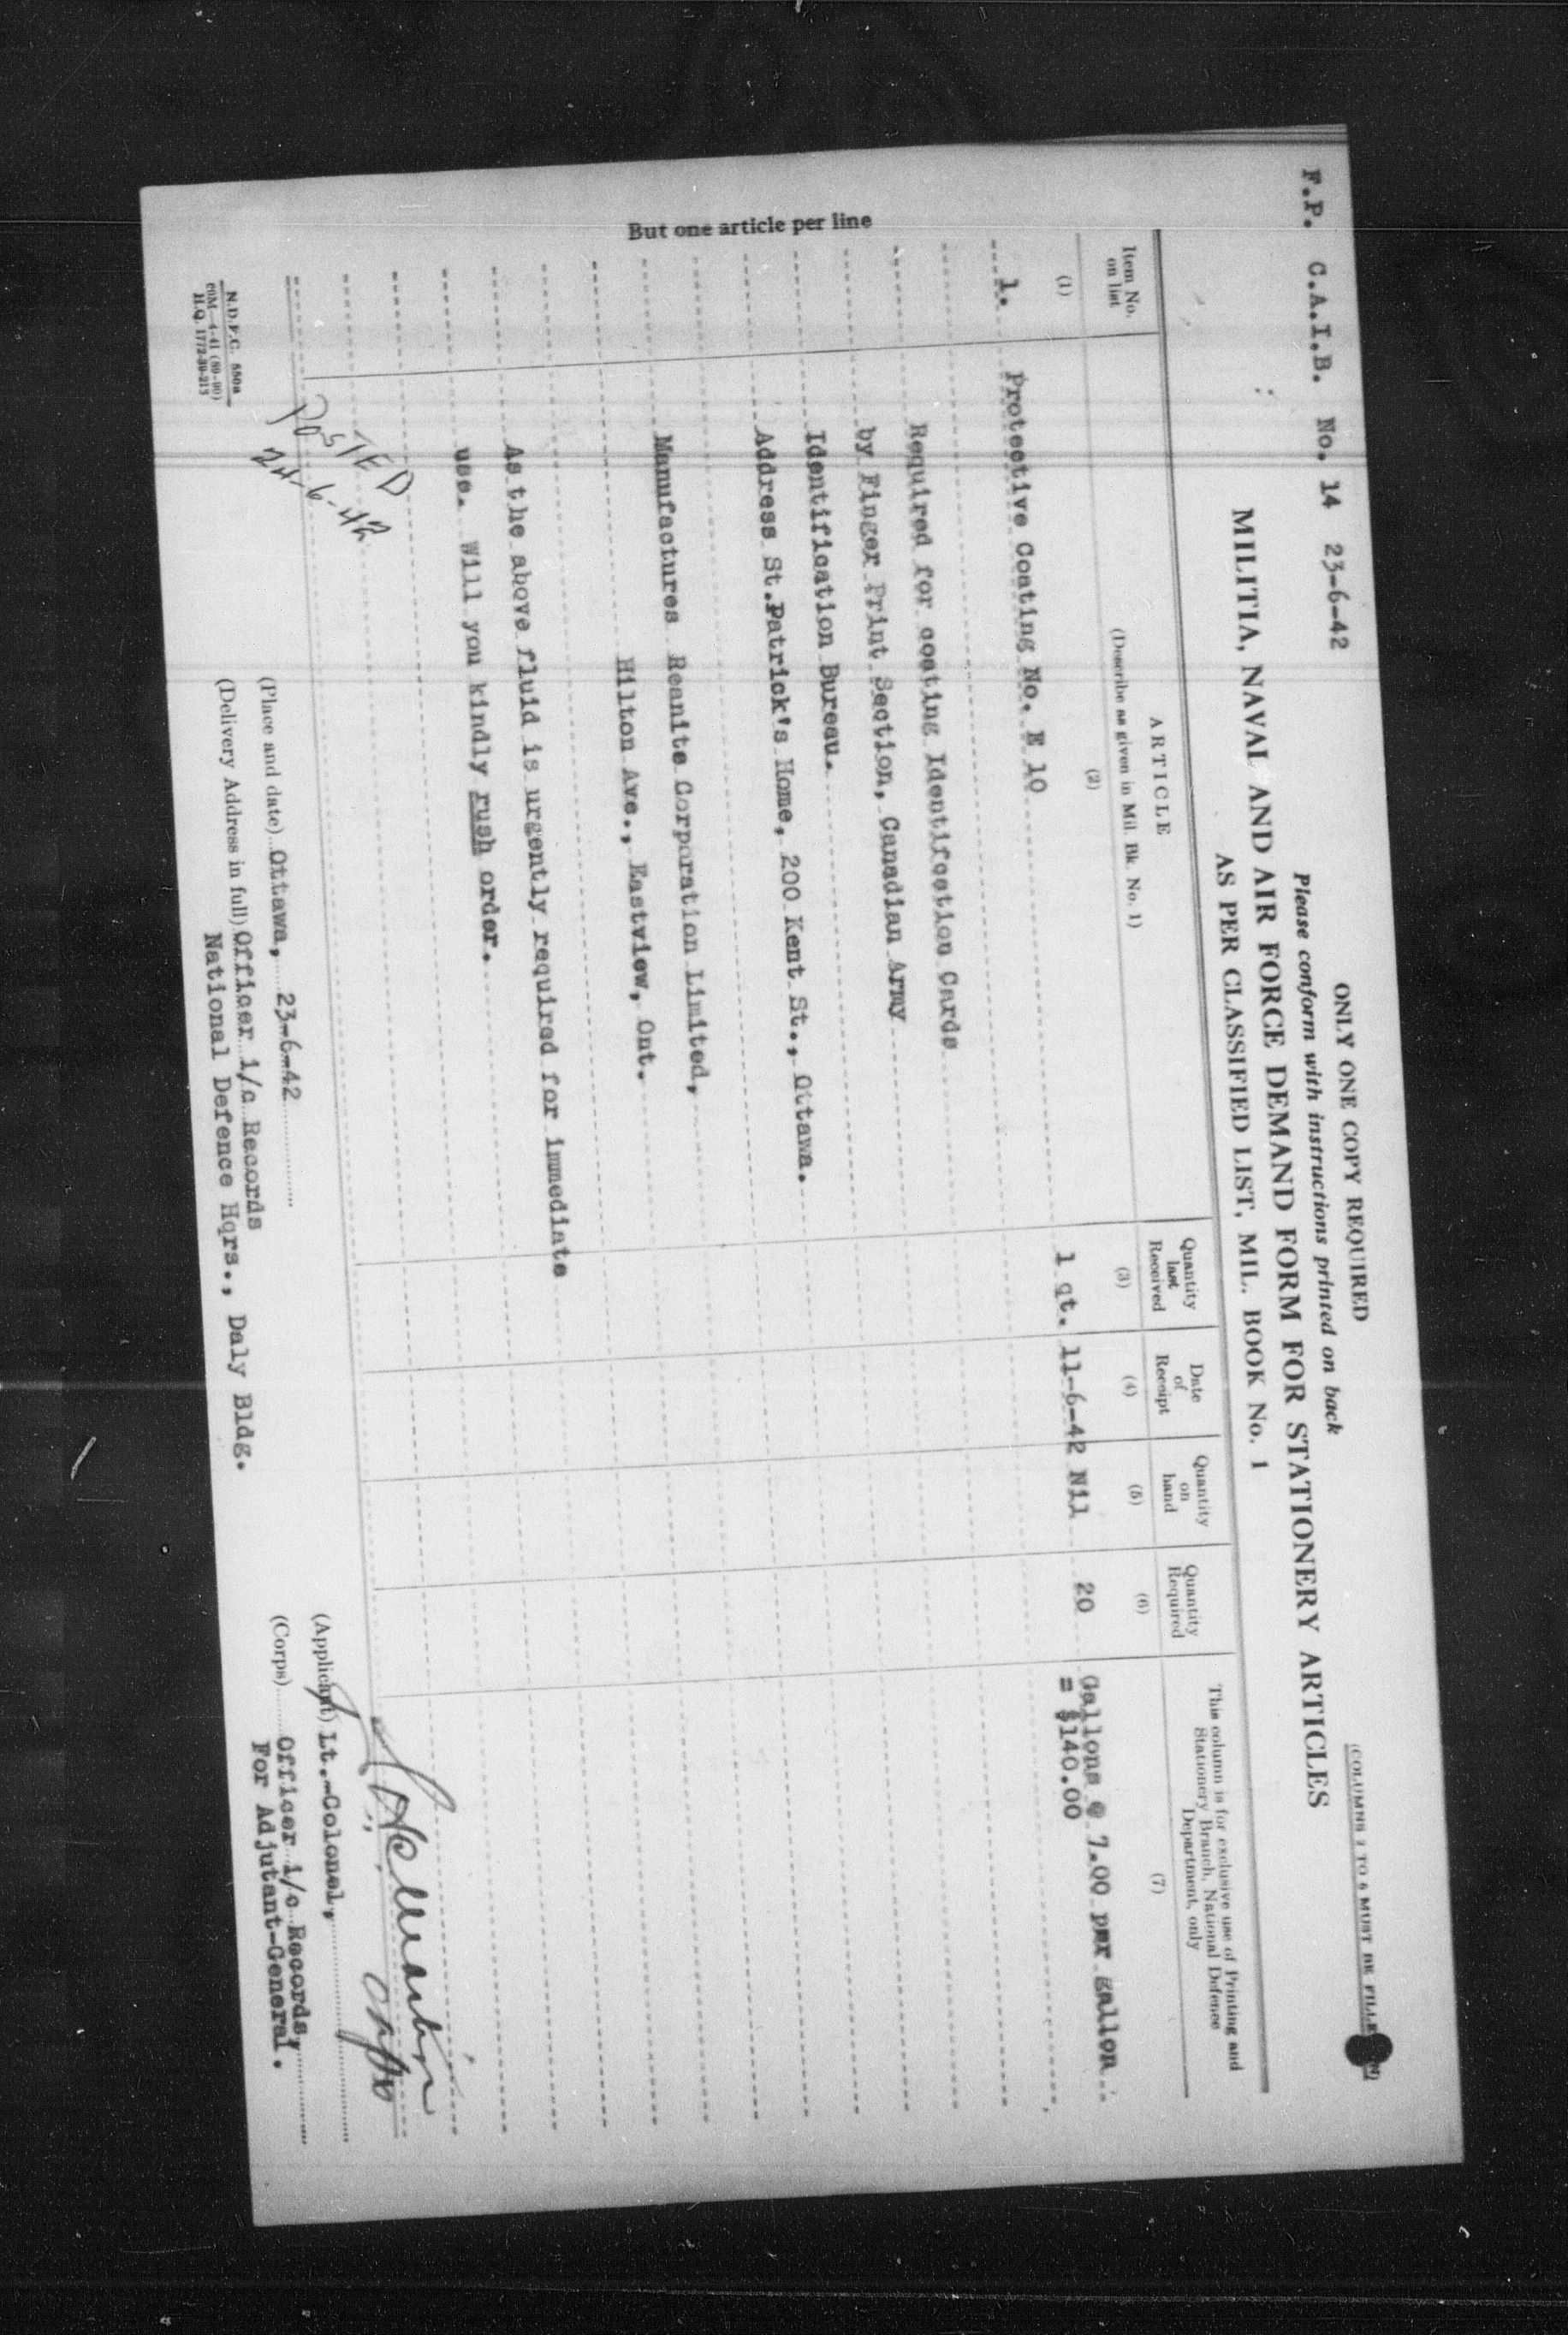 F.P. C.A.I.B. No. 14 23-6-42
ONLY ONE COPY REQUIRED
(COLUMNS 2 TO 6 MUST BE
Please conform with instructions printed on back
MILITIA, NAVAL AND AIR FORCE DEMAND FORM FOR STATIONERY ARTICLES
AS PER CLASSIFIED LIST, MIL. BOOK No. 1
Item No. on list
ARTICLE
(Describe as given in Mil. Bk. No. 1)
Quantity last Received
Date of Receipt
Quantity on hand
Quantity Required
This column is for exclusive use of Printing and Stationery Branch, National Defence Department, only
(1) (2) (3) (4) (5) (6) (7)
1. Protective Coating No. E 10 1 qt. 11-6-42 Nil 20 Gallons @ 7.00 per gallon
= $140.00
Required for coating Identifcation Cards
by Finger Print Section, Canadian Army
Identification Bureau.
Address St.Patrick's Home, 200 Kent St., Ottawa.
Manufactures Reanite Corporation Limited,
Hilton Ave., Eastview, Ont.
As the above fluid is urgently required for immediate
use. Will you kindly rush order.
But one article per line
POSTED
24-6-42
Capt
(Place and date) Ottawa, 23-6-42
(Applicant) Lt.-Colonel,
(Delivery Address in full) Officer i/c Records
National Defence Hqrs., Daly Bldg.
(Corps) Officer i/c Records,
For Adjutant-General.
N.D.F.C. 550a
60M-4-41 (80-90)
H.Q. 1772-39-213